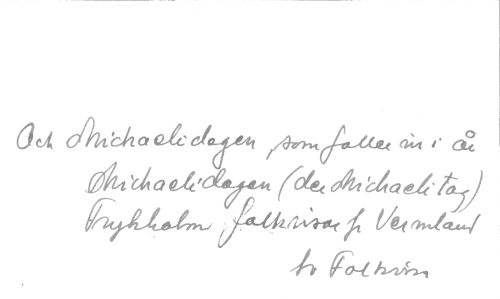 Och Michaelidagen, som faller in i år
Michaelidagen (der Michaelitag)
Frykholm, folkvisor fr Vermland
sv Folkvisa